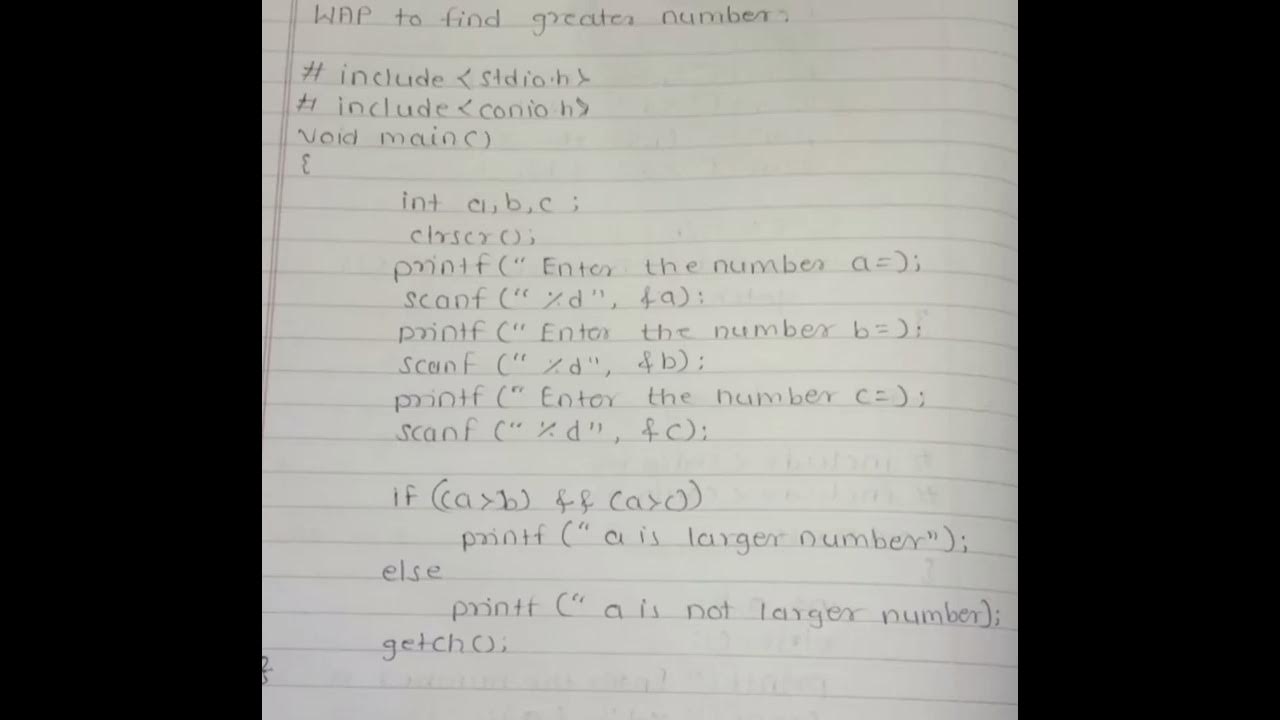 WAP to find greater number.
# include <stdio.h>
# include <conio.h>
void main()
{
int a, b, c ;
clrscr();
printf (" Enter the number a=);
scanf (" %d", &a);
printf (" Enter the number b=);
scanf (" %d", &b);
printf (" Enter the number c=);
scanf (" %d", &c);
if ((a>b) && (a>c))
printf (" a is larger number");
else
printf (" a is not larger number);
getch();
}